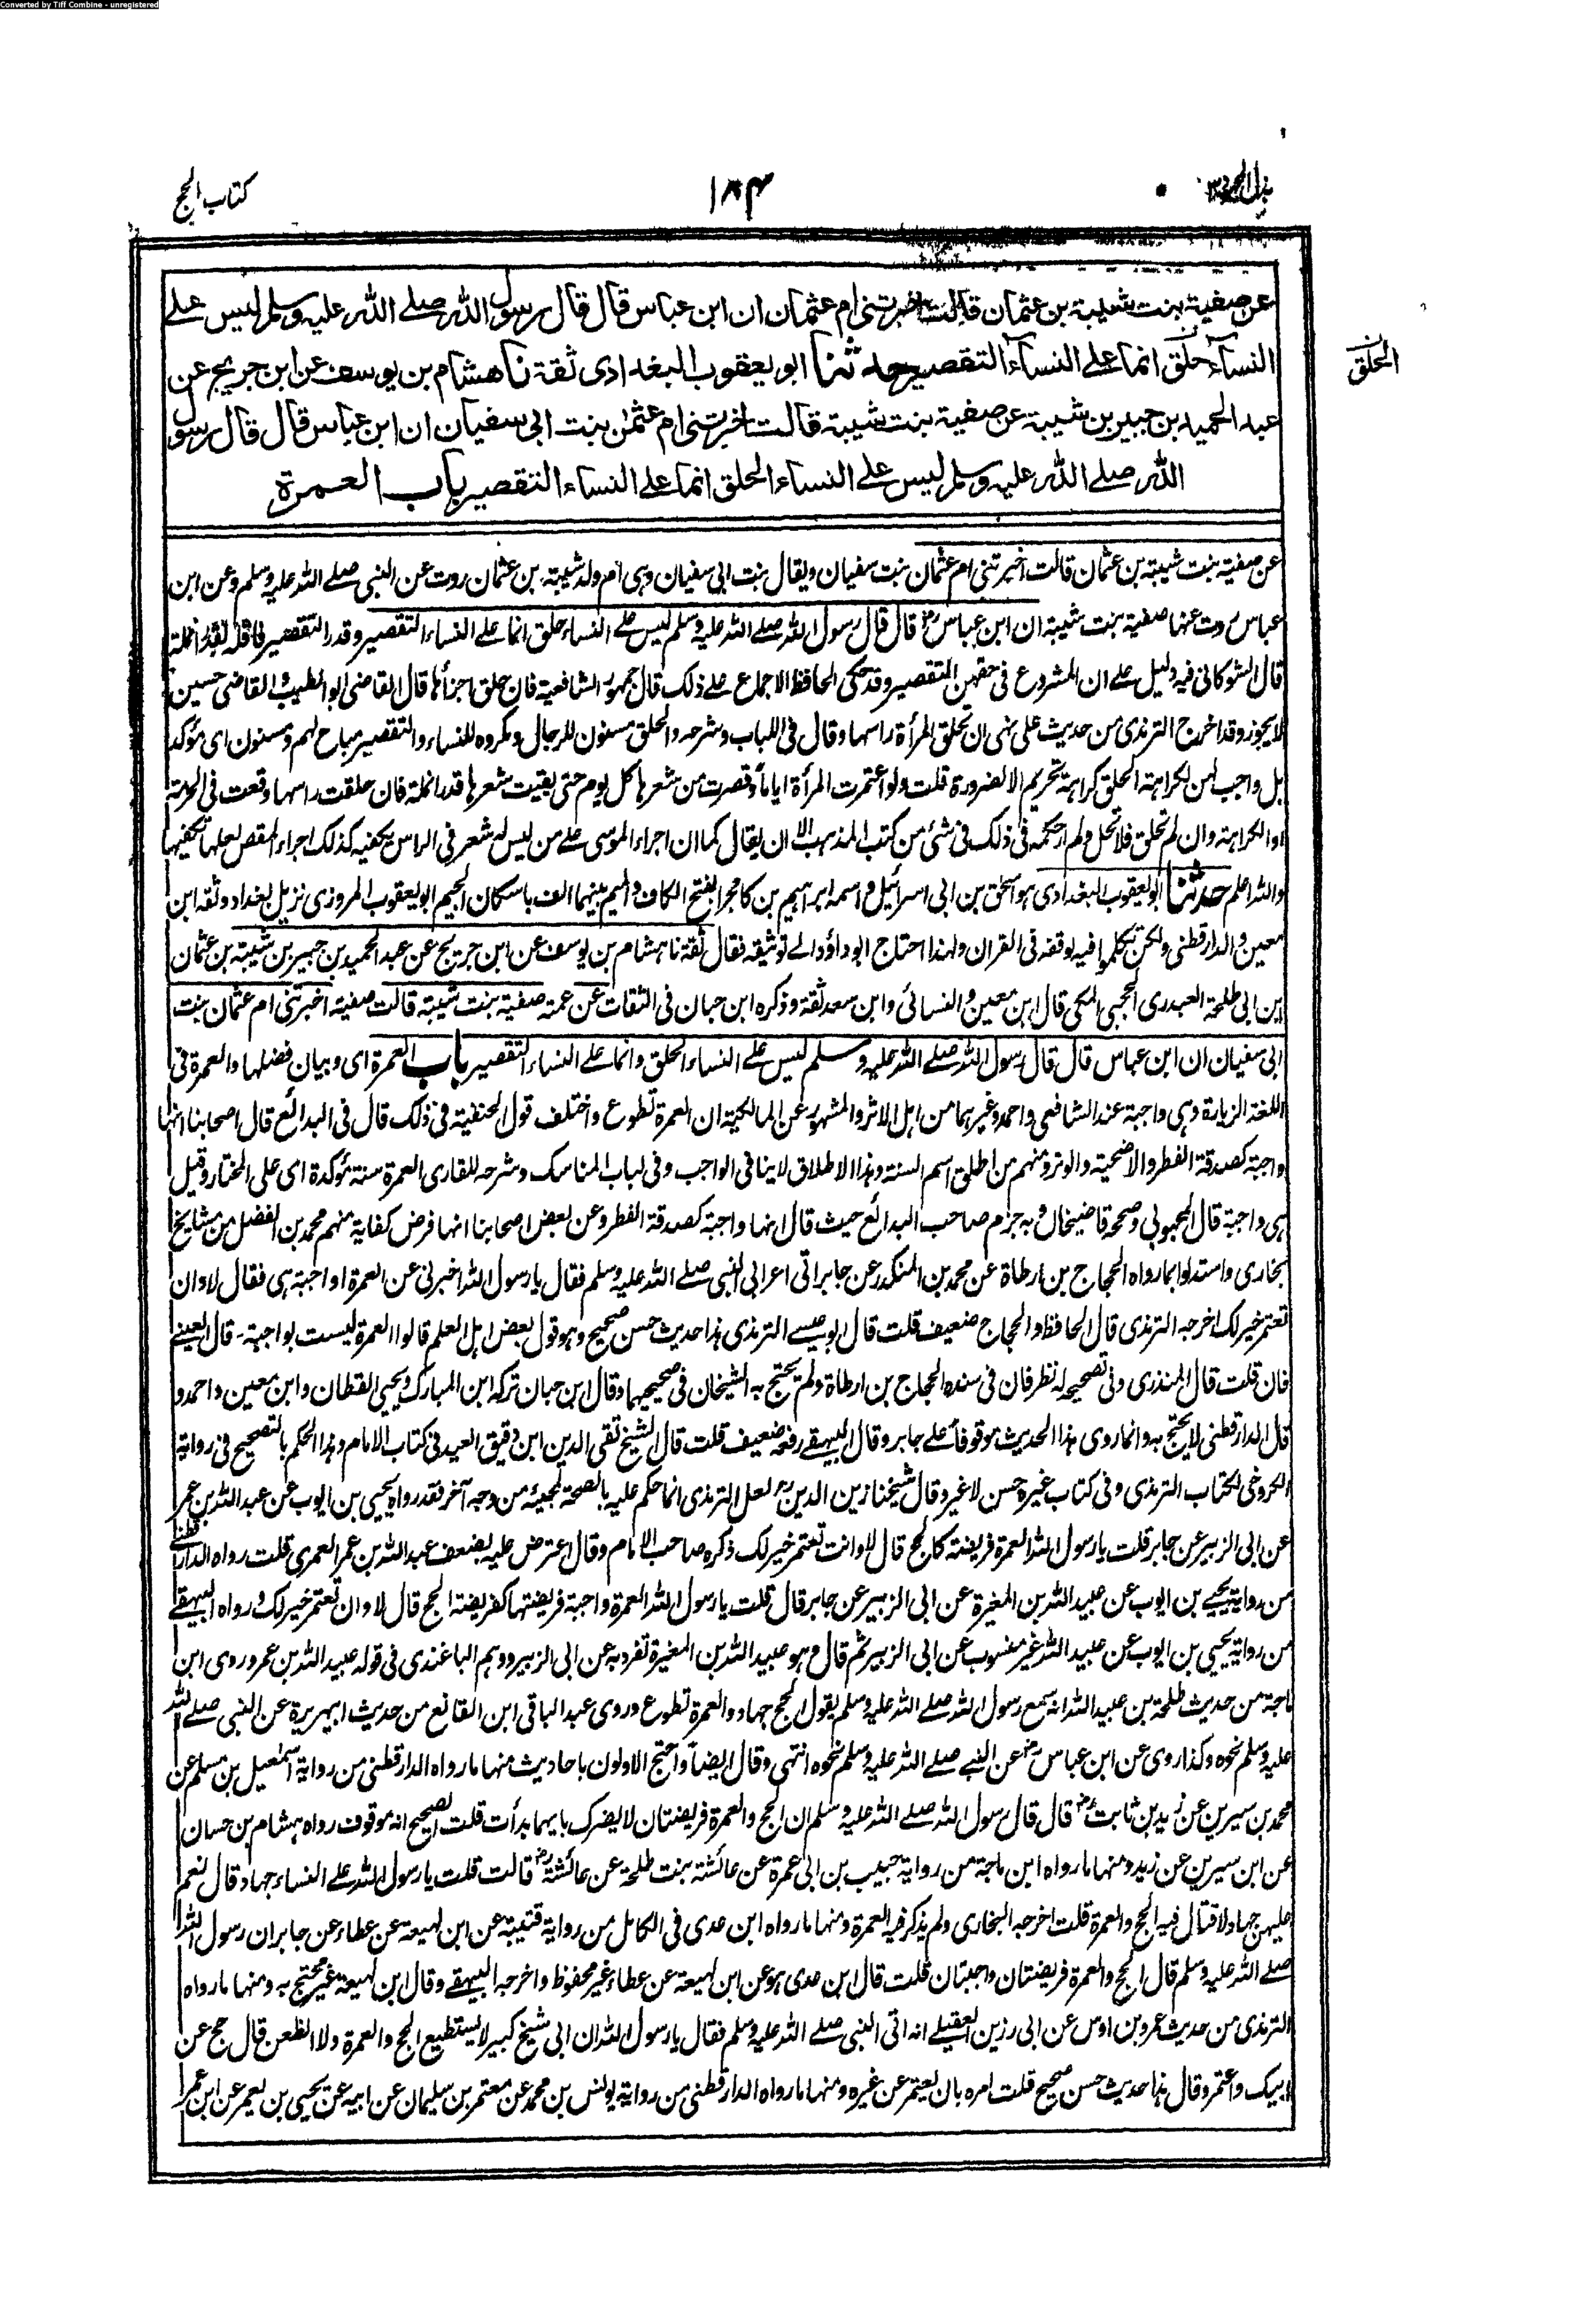 Converted by Tiff Combine - unregistered
بذل المجهود ٣
١٨٤
كتاب الحج
عن صفية بنت شيبة بن عثمان قالت اخبرتنى ام عثمان ان ابن عباس قال قال رسول الله صلے الله عليه وسلم ليس على
النساء حلق انما على النساء التقصير حدثنا ابو يعقوب البغدادى ثقة نا هشام بن يوسف عن ابن جريج عن
الحلق
عبد الحميد بن جبير بن شيبة عن صفية بنت شيبة قالت اخبرتنى ام عثمٰن بنت ابى سفيان ان ابن عباس قال قال رسول
الله صلے الله عليه وسلم ليس على النساء الحلق انما على النساء التقصير باب العمرة
عن صفية بنت شيبة بن عثمان قالت اخبرتنى ام عثمان بنت سفيان ويقال بنت ابى سفيان وہى ام ولد شيبة بن عثمان روت عن النبى صلے الله عليه وسلم وعن ابن
عباس روت عنها صفية بنت شيبة ان ابن عباس رض قال قال رسول الله صلے الله عليه وسلم ليس على النساء حلق انما على النساء التقصير وقدر التقصير فاقله بقدر انملة
قال الشوكانى فيه دليل على ان المشروع فى حقهن التقصير وقد حكى الحافظ الاجماع على ذلك قال جمهور الشافعية فان حلق اجزأها قال القاضى ابو الطيب والقاضى حسين
لا يجوز وقد اخرج الترمذى من حديث على نهى ان تحلق المرأة راسها وقال فى اللباب وشرحه والحلق مسنون للرجال ومكروه للنساء والتقصير مباح لهم ومسنون اى مؤكد
بل واجب لهن لكراهة الحلق كراهة تحريم الا لضرورة قلت ولو اعتمرت المرأة اياماً وقصرت من شعرها كل يوم حتى بقيت شعرها قدر انملة فان حلقت راسها وقعت فى الحرمة
او الكراهة وان لم تحلق فلا تحل ولم ار حكمه فى ذلك فى شئ من كتب المذہب الا ان يقال كما ان اجراء الموسى على من ليس له شعر فى الراس يكفيه كذلك اجراء المقص لعلها تكفيها
والله اعلم حدثنا ابو يعقوب البغدادى ہو اسحٰق بن ابى اسرائيل واسمه ابراہيم بن كامجرا بفتح الكاف والميم بينهما الف باسكان الجيم ابو يعقوب المروزى نزيل بغداد وثقه ابن
معين والدارقطنى ولكن تكلموا فيه لوقفه فى القران ولهذا احتاج ابو داؤد الے توثيقه فقال ثقة نا ہشام بن يوسف عن ابن جريج عن عبد الحميد بن جبير بن شيبة بن عثمان
ابن ابى طلحة العبدرى الحجبى المكى قال ابن معين والنسائى وابن سعد ثقة وذكره ابن حبان فى الثقات عن عمته صفية بنت شيبة قالت صفية اخبرتنى ام عثمان بنت
ابى سفيان ان ابن عباس قال قال رسول الله صلے الله عليه وسلم ليس على النساء الحلق وانما على النساء التقصير باب العمرة اى وبيان فضلها والعمرة فى
اللغة الزيارة وہى واجبة عند الشافعى واحمد وغيرہما من اہل الاثر والمشہور عن المالكية ان العمرة تطوع واختلف قول الحنفية فى ذلك قال فى البدائع قال اصحابنا انها
واجبة كصدقة الفطر والاضحية والوتر ومنهم من اطلق اسم السنة وہذا الاطلاق لا ينافى الواجب وفى لباب المناسك وشرحه للقارى العمرة سنة مؤكدة اى على المختار وقيل
ہى واجبة قال المحبوبى وصححه قاضيخان وبه جزم صاحب البدائع حيث قال انها واجبة كصدقة الفطر وعن بعض اصحابنا انها فرض كفاية منهم محمد بن الفضل من مشايخ
بخارى واستدلوا بما رواه الحجاج بن ارطاة عن محمد بن المنكدر عن جابر اتى اعرابى النبى صلے الله عليه وسلم فقال يا رسول الله اخبرنى عن العمرة او اجبة ہى فقال لا وان
تعتمر خير لك اخرجه الترمذى قال الحافظ والحجاج ضعيف قلت قال ابو عيسے الترمذى ہذا حديث حسن صحيح وہو قول بعض اہل العلم قالوا العمرة ليست بواجبة - قال العينے
فان قلت قال المنذرى وفى تصحيحه له نظر فان فى سنده الحجاج بن ارطاة ولم يحتج به الشيخان فى صحيحيهما وقال ابن حبان تركه ابن المبارك ويحيى القطان وابن معين واحمد و
قال الدارقطنى لا يحتج به وانما روى ہذا الحديث موقوفاً على جابر وقال البيہقے رفعه ضعيف قلت قال الشيخ تقى الدين ابن دقيق العيد فى كتاب الامام وہذا الحكم بالتصحيح فى رواية
الكروخى لكتاب الترمذى وفى كتاب غيره حسن لا غير وقال شيخنا زين الدين رح لعل الترمذى انما حكم عليه بالصحة لمجيئه من وجه آخر فقد رواه يحيى بن ايوب عن عبد الله بن عمر
عن ابى الزبير عن جابر قلت يا رسول الله العمرة فريضة كالحج قال لا وانت تعتمر خير لك ذكره صاحب الامام وقال اعترض عليه بضعف عبد الله بن عمر العمرى قلت رواه الدارقطنے
من رواية يحيے بن ايوب عن عبيد الله بن المغيرة عن ابى الزبير عن جابر قال قلت يا رسول الله العمرة واجبة فريضتها كفريضة الحج قال لا وان تعتمر خير لك ورواه البيہقے
من رواية يحيى بن ايوب عن عبيد الله غير منسوب عن ابى الزبير ثم قال وہو عبيد الله بن المغيرة تفرد به عن ابى الزبير ووہم الباغندى فى قوله عبيد الله بن عمر وروى ابن
ماجة من حديث طلحة بن عبيد الله انه سمع رسول الله صلے الله عليه وسلم يقول الحج جهاد والعمرة تطوع وروى عبد الباقى ابن القانع من حديث ابى ہريرة عن النبى صلے الله
عليه وسلم نحوه وكذا روى عن ابن عباس رض عن النبے صلے الله عليه وسلم نحوه انتہى وقال ايضاً واحتج الاولون باحاديث منها ما رواه الدارقطنى من رواية اسمٰعيل بن مسلم عن
محمد بن سيرين عن زيد بن ثابت رض قال قال رسول الله صلے الله عليه وسلم ان الحج والعمرة فريضتان لا يضرك بايهما بدأت قلت الصحيح انه موقوف رواه ہشام بن حسان
عن ابن سيرين عن زيد ومنها ما رواه ابن ماجة من رواية حبيب بن ابى عمرة عن عائشة بنت طلحة عن عائشة رض قالت قلت يا رسول الله على النساء جهاد قال نعم
عليهن جهاد لا قتال فيه الحج والعمرة قلت اخرجه البخارى ولم يذكر فيه العمرة ومنها ما رواه ابن عدى فى الكامل من رواية قتيبة عن ابن لہيعة عن عطاء عن جابر ان رسول الله
صلے الله عليه وسلم قال الحج والعمرة فريضتان واجبتان قلت قال ابن عدى ہو عن ابن لہيعة عن عطاء غير محفوظ واخرجه البيہقے وقال ابن لہيعة غير محتج به ومنها ما رواه
الترمذى من حديث عمرو بن اوس عن ابى رزين العقيلے انه اتى النبى صلے الله عليه وسلم فقال يا رسول الله ان ابى شيخ كبير لا يستطيع الحج والعمرة ولا الظعن قال حج عن
ابيك واعتمر وقال ہذا حديث حسن صحيح قلت امره بان يعتمر عن غيره ومنها ما رواه الدارقطنى من رواية يونس بن محمد عن معتمر بن سليمان عن ابيه عن يحيى بن يعمر عن ابن عمر